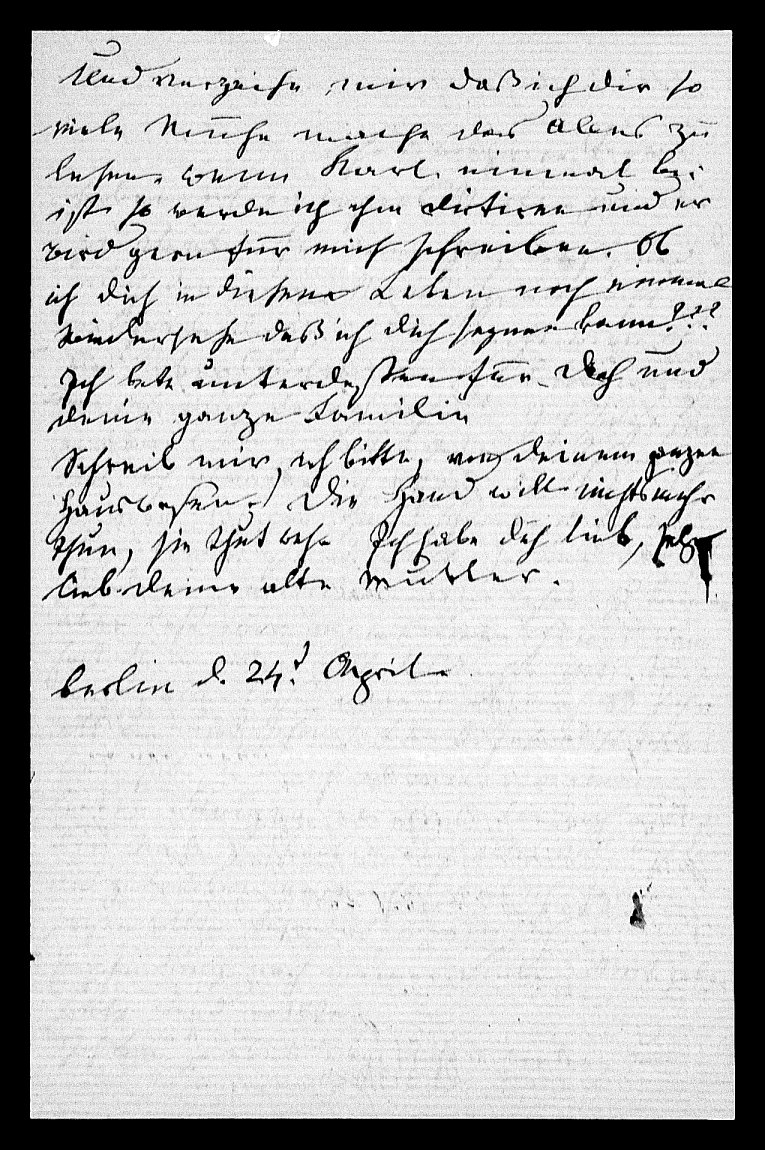 Und verzeihe mir daß ich dir so
viele Mühe mache das alles zu
lesen. wenn Karl einmal bei
ist so werde ich ihm dictiren und er
wird gern für mich schreiben. Ob
ich dich in diesem Leben noch einmal
wiedersehe daß ich dich segnen kann???
Ich bete unterdeßen für Dich und
deine ganze Familie
Schreib mir, ich bitte, von deinem ganzen
Hauswesen. Die Hand will nichts mehr
thun, sie thut weh. Ich habe dich lieb,
lieb deine alte Mutter.
berlin d. 24t April